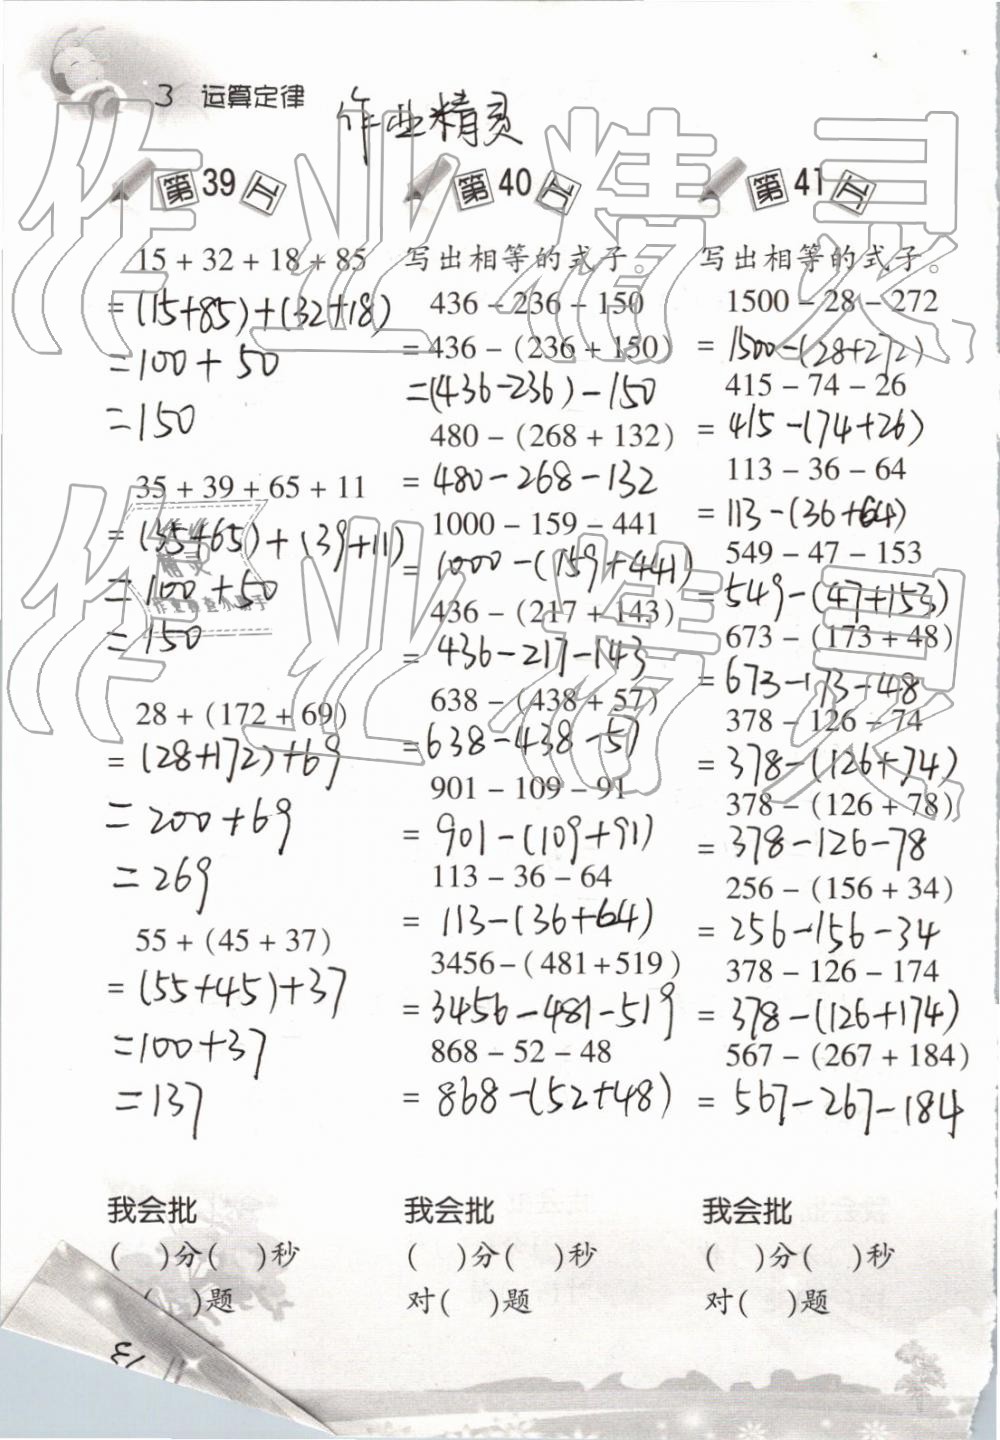 3 运算定律
作业精灵
第39页
15 + 32 + 18 + 85
= (15+85)+(32+18)
= 100 + 50
= 150
35 + 39 + 65 + 11
= (35+65)+(39+11)
= 100 + 50
= 150
28 + (172 + 69)
= (28+172)+69
= 200+69
= 269
55 + (45 + 37)
= (55+45)+37
= 100+37
= 137
我会批
(  )分(  )秒
(  )题
第40页
写出相等的式子。
436 - 236 - 150
= 436 - (236 + 150)
= (436-236)-150
480 - (268 + 132)
= 480-268-132
1000 - 159 - 441
= 1000-(159+441)
436 - (217 + 143)
= 436-217-143
638 - (438 + 57)
= 638-438-57
901 - 109 - 91
= 901-(109+91)
113 - 36 - 64
= 113-(36+64)
3456 - (481 + 519)
= 3456-481-519
868 - 52 - 48
= 868-(52+48)
我会批
(  )分(  )秒
对(  )题
第41页
写出相等的式子。
1500 - 28 - 272
= 1500-(28+272)
415 - 74 - 26
= 415-(74+26)
113 - 36 - 64
= 113-(36+64)
549 - 47 - 153
= 549-(47+153)
673 - (173 + 48)
= 673-173-48
378 - 126 - 74
= 378-(126+74)
378 - (126 + 78)
= 378-126-78
256 - (156 + 34)
= 256-156-34
378 - 126 - 174
= 378-(126+174)
567 - (267 + 184)
= 567-267-184
我会批
(  )分(  )秒
对(  )题
作业精灵
作业精灵